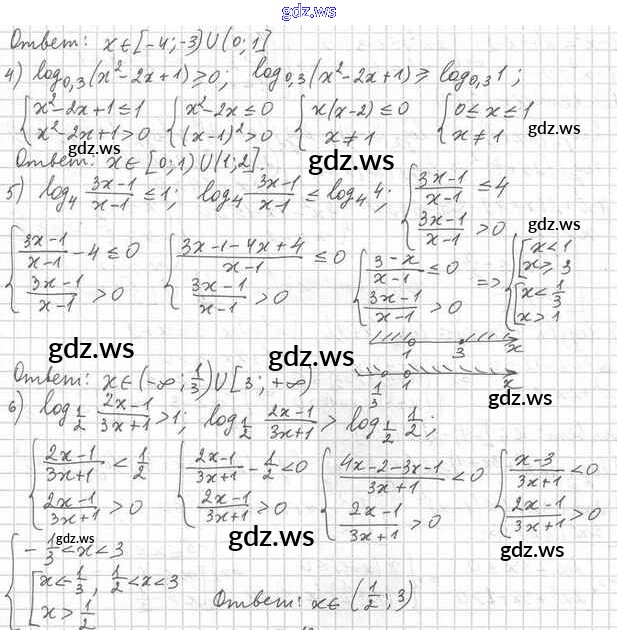 gdz.ws
Ответ: x∈[-4;-3)∪(0;1]
4) log₀,₃(x²-2x+1)≥0; log₀,₃(x²-2x+1)≥log₀,₃1;
{x²-2x+1≤1 {x²-2x≤0 {x(x-2)≤0 {0≤x≤1
{x²-2x+1>0 {(x-1)²>0 {x≠1 {x≠1
gdz.ws gdz.ws gdz.ws
Ответ: x∈[0;1)∪(1;2].
5) log₄ (3x-1)/(x-1) ≤1; log₄ (3x-1)/(x-1) ≤log₄4; {(3x-1)/(x-1) ≤4
{(3x-1)/(x-1) >0
gdz.ws
{(3x-1)/(x-1) -4≤0 {(3x-1-4x+4)/(x-1) ≤0 {(3-x)/(x-1) ≤0 => {[x<1
[x≥3
{(3x-1)/(x-1) >0 {(3x-1)/(x-1) >0 {(3x-1)/(x-1) >0 {[x<1/3
[x>1
1 3 x
gdz.ws gdz.ws gdz.ws
1/3 1 x
Ответ: x∈(-∞;1/3)∪[3;+∞)
6) log₁/₂ (2x-1)/(3x+1) >1; log₁/₂ (2x-1)/(3x+1) >log₁/₂ 1/2;
{(2x-1)/(3x+1) <1/2 {(2x-1)/(3x+1) -1/2<0 {(4x-2-3x-1)/(3x+1) <0 {(x-3)/(3x+1) <0
{(2x-1)/(3x+1) >0 {(2x-1)/(3x+1) >0 {(2x-1)/(3x+1) >0 {(2x-1)/(3x+1) >0
gdz.ws gdz.ws gdz.ws
{-1/3<x<3
{[x<-1/3, 1/2<x<3
[x>1/2
Ответ: x∈(1/2;3)